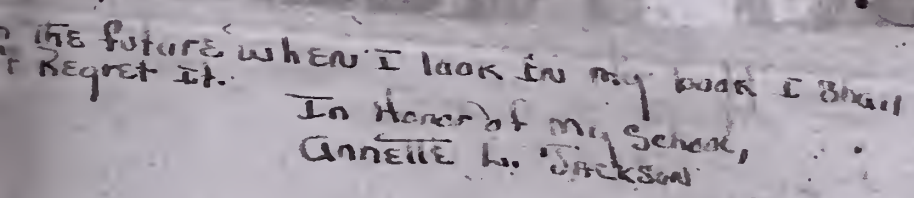 the future when I look in my book I shall
Regret It.
In Honor of my School,
Annette L. Jackson